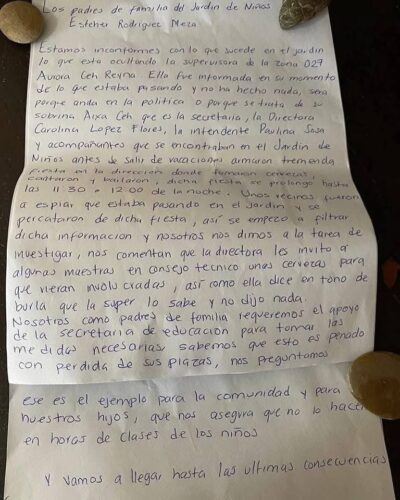 Los padres de familia del Jardin de Niños
Estcher Rodriguez Meza
Estamos inconformes con lo que sucede en el jardin
lo que esta ocultando la supervisora de la zona 029
Aurora Ceh Reyna. Ella fue informada en su momento
de lo que estaba pasando y no ha hecho nada, sera
porque anda en la politica o porque se trata de su
sobrina Aixa Ceh que es la secretaria, la Directora
Carolina Lopez Flores, la intendente Paulina Sosa
y acompañantes que se encontraban en el Jardin de
Niños antes de salir de vacaciones armaron tremenda
fiesta en la dirección donde tomaron cervezas,
cantaron y bailaron, dicha fiesta se prolongo hasta
las 11:30 a 12:00 de la noche. Unos vecinos fueron
a espiar que estaba pasando en el jardin y se
percataron de dicha fiesta, así se empezo a filtrar
dicha informacion y nosotros nos dimos a la tarea de
investigar, nos comentan que la directora les invito a
algunas maestras en consejo tecnico unas cervezas para
que vieran involucradas, así como ella dice en tono de
burla que la super lo sabe y no dijo nada.
Nosotros como padres de familia requeremos el apoyo
de la secretaria de educación para tomar las
medidas necesarias, sabemos que esto es penado
con perdida de sus plazas, nos preguntamos
ese es el ejemplo para la comunidad y para
nuestros hijos, que nos asegura que no lo hacen
en horas de clases de los niños
Y vamos a llegar hasta las ultimas consecuencias